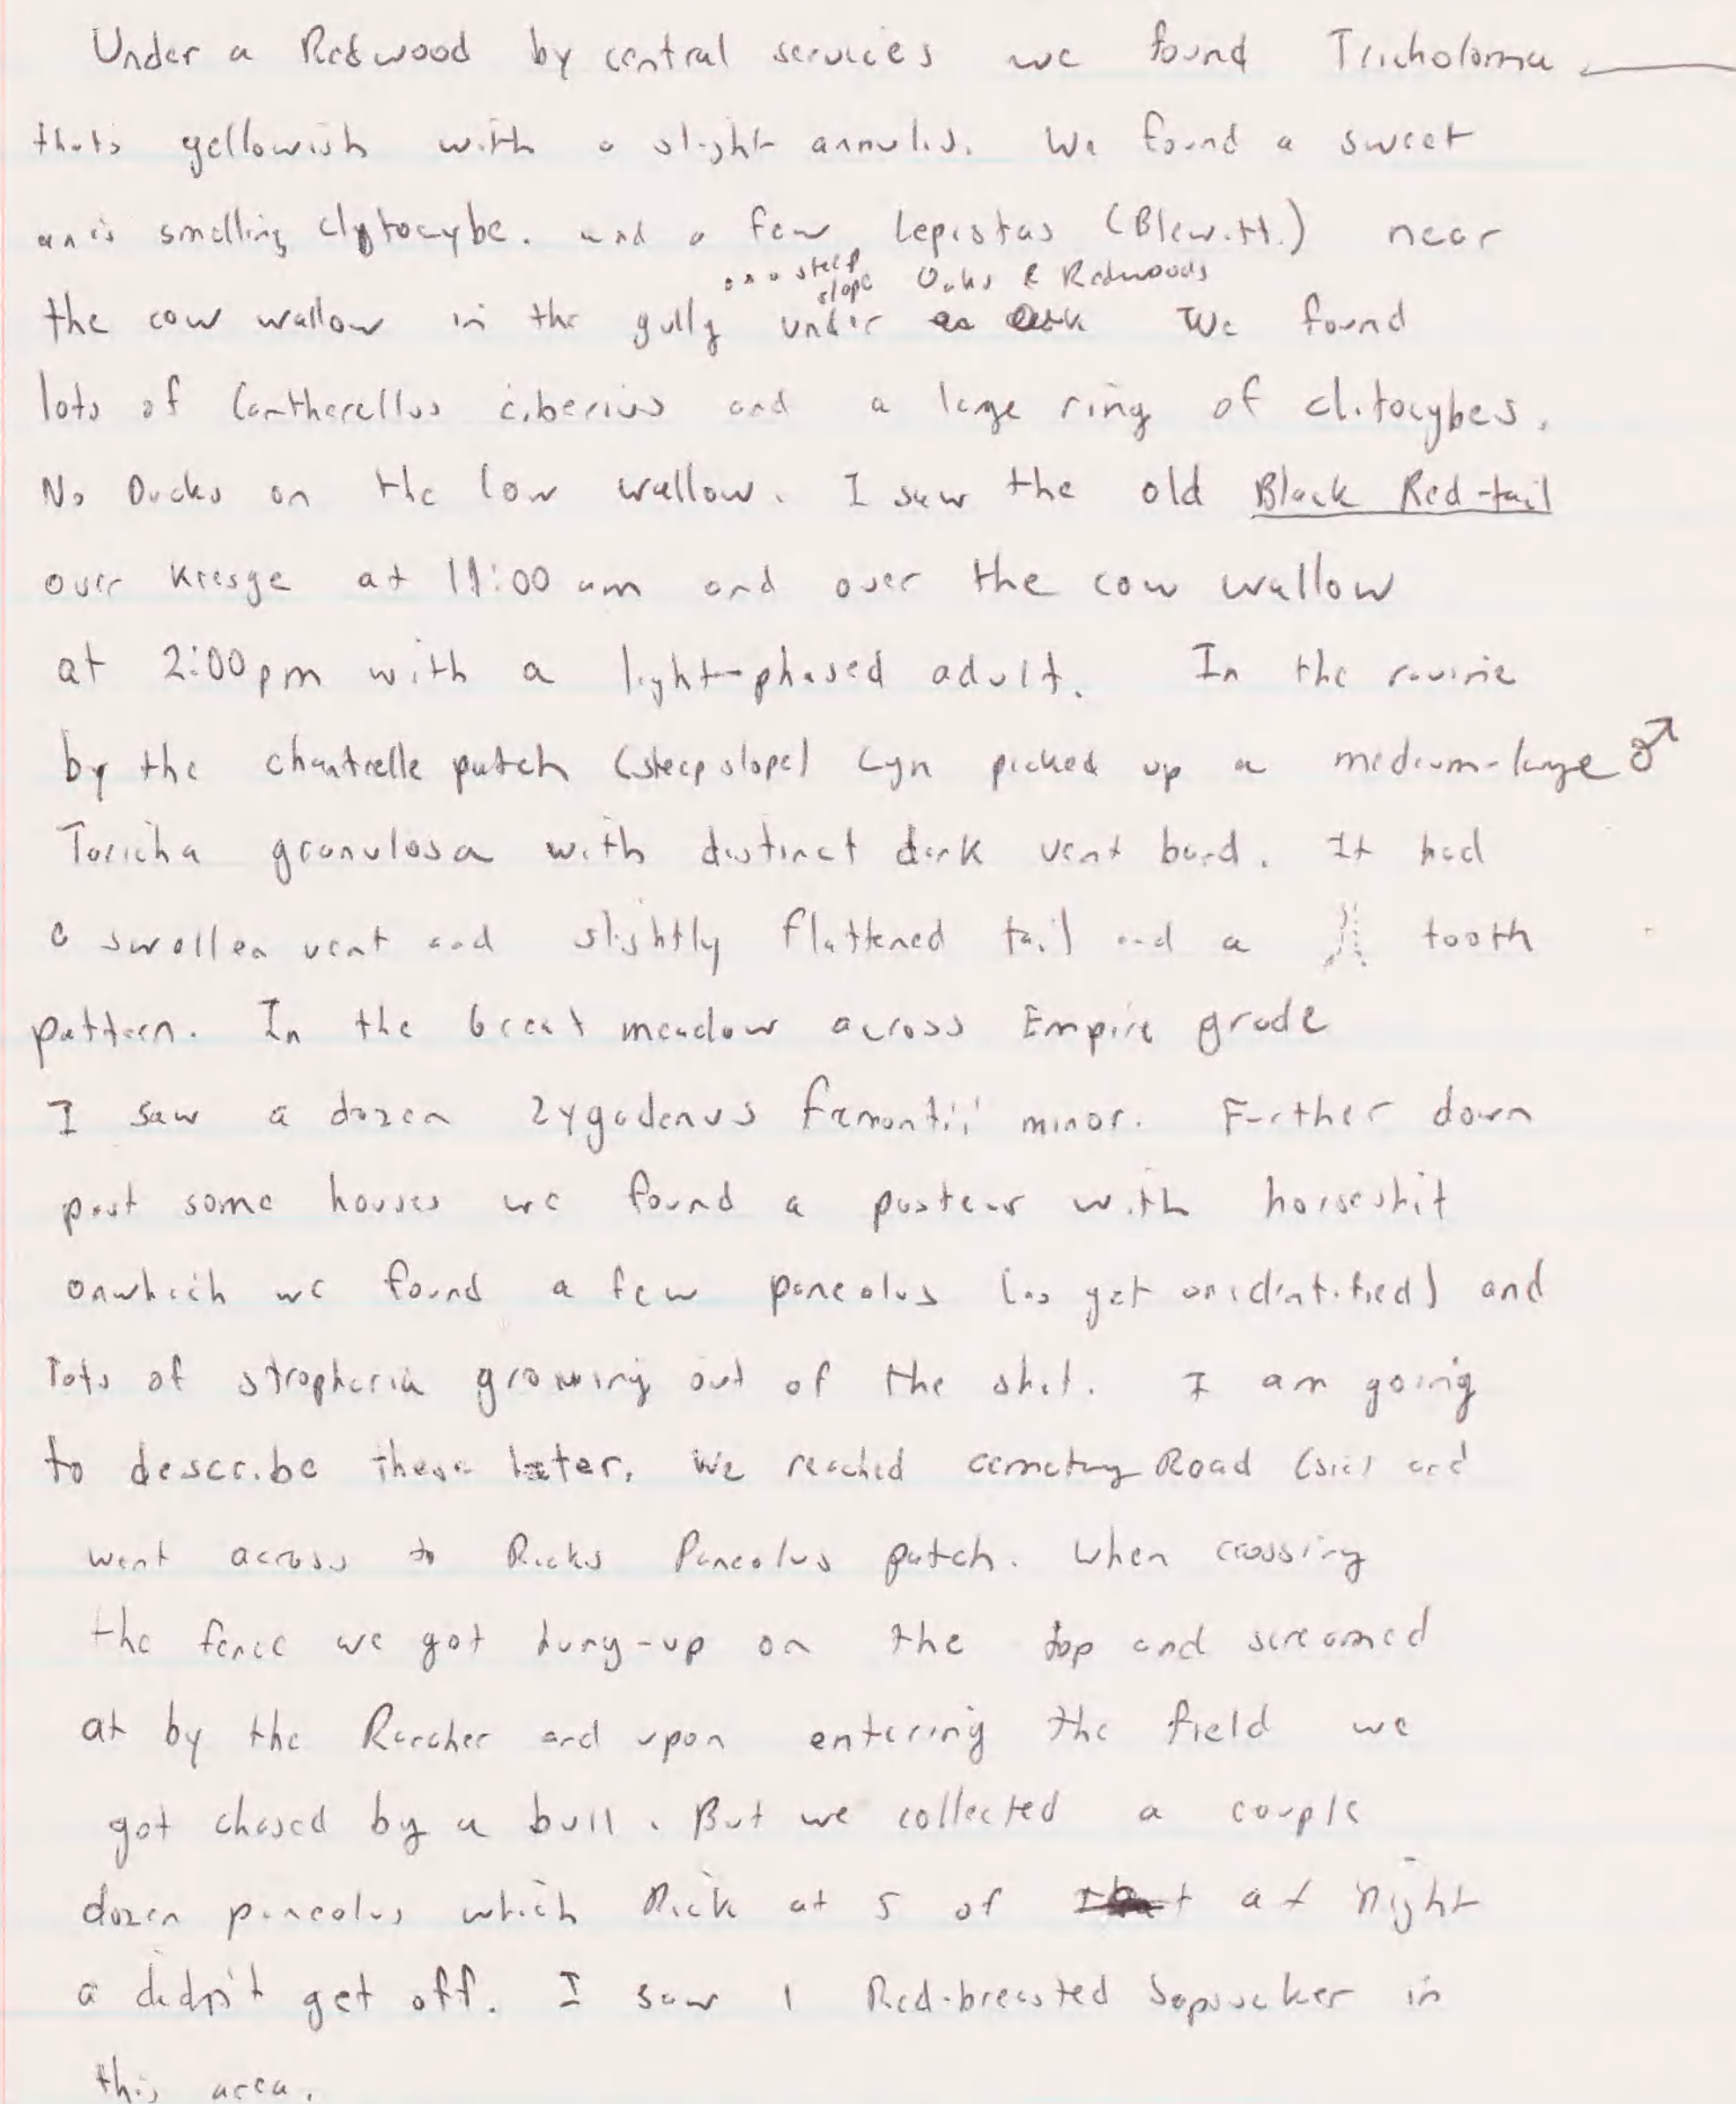 Under a Redwood by central services we found Tricholoma
thats yellowish with a slight annulus. We found a sweet
anis smelling clytocybe. and a few Lepistas (Blewitt.) near
on a steep slope Oaks & Redwoods
the cow wallow in the gully under We found
lots of Cantherellus ciberius and a large ring of clitocybes.
No Ducks on the Cow wallow. I saw the old Black Red-tail
over Kresge at 11:00 am and over the cow wallow
at 2:00pm with a light-phased adult. In the ravine
by the chantrelle patch (steep slope) Lyn picked up a medium-large ♂
Taricha granulosa with distinct dark vent band. It had
a swollen vent and slightly flattened tail and a tooth
pattern. In the Great meadow across Empire grade
I saw a dozen Zygadenus fremontii minor. Further down
past some houses we found a pasteur with horseshit
onwhich we found a few paneolus (as yet unidentified) and
lots of stropharia growing out of the shit. I am going
to describe these later. We reached cemetery Road (sic) and
went across to Ricks Paneolus patch. When crossing
the fence we got hung-up on the top and screamed
at by the Rancher and upon entering the field we
got chased by a bull. But we collected a couple
dozen paneolus which Rick at 5 of at night
a didn't get off. I saw 1 Red-breasted Sapsucker in
this area.